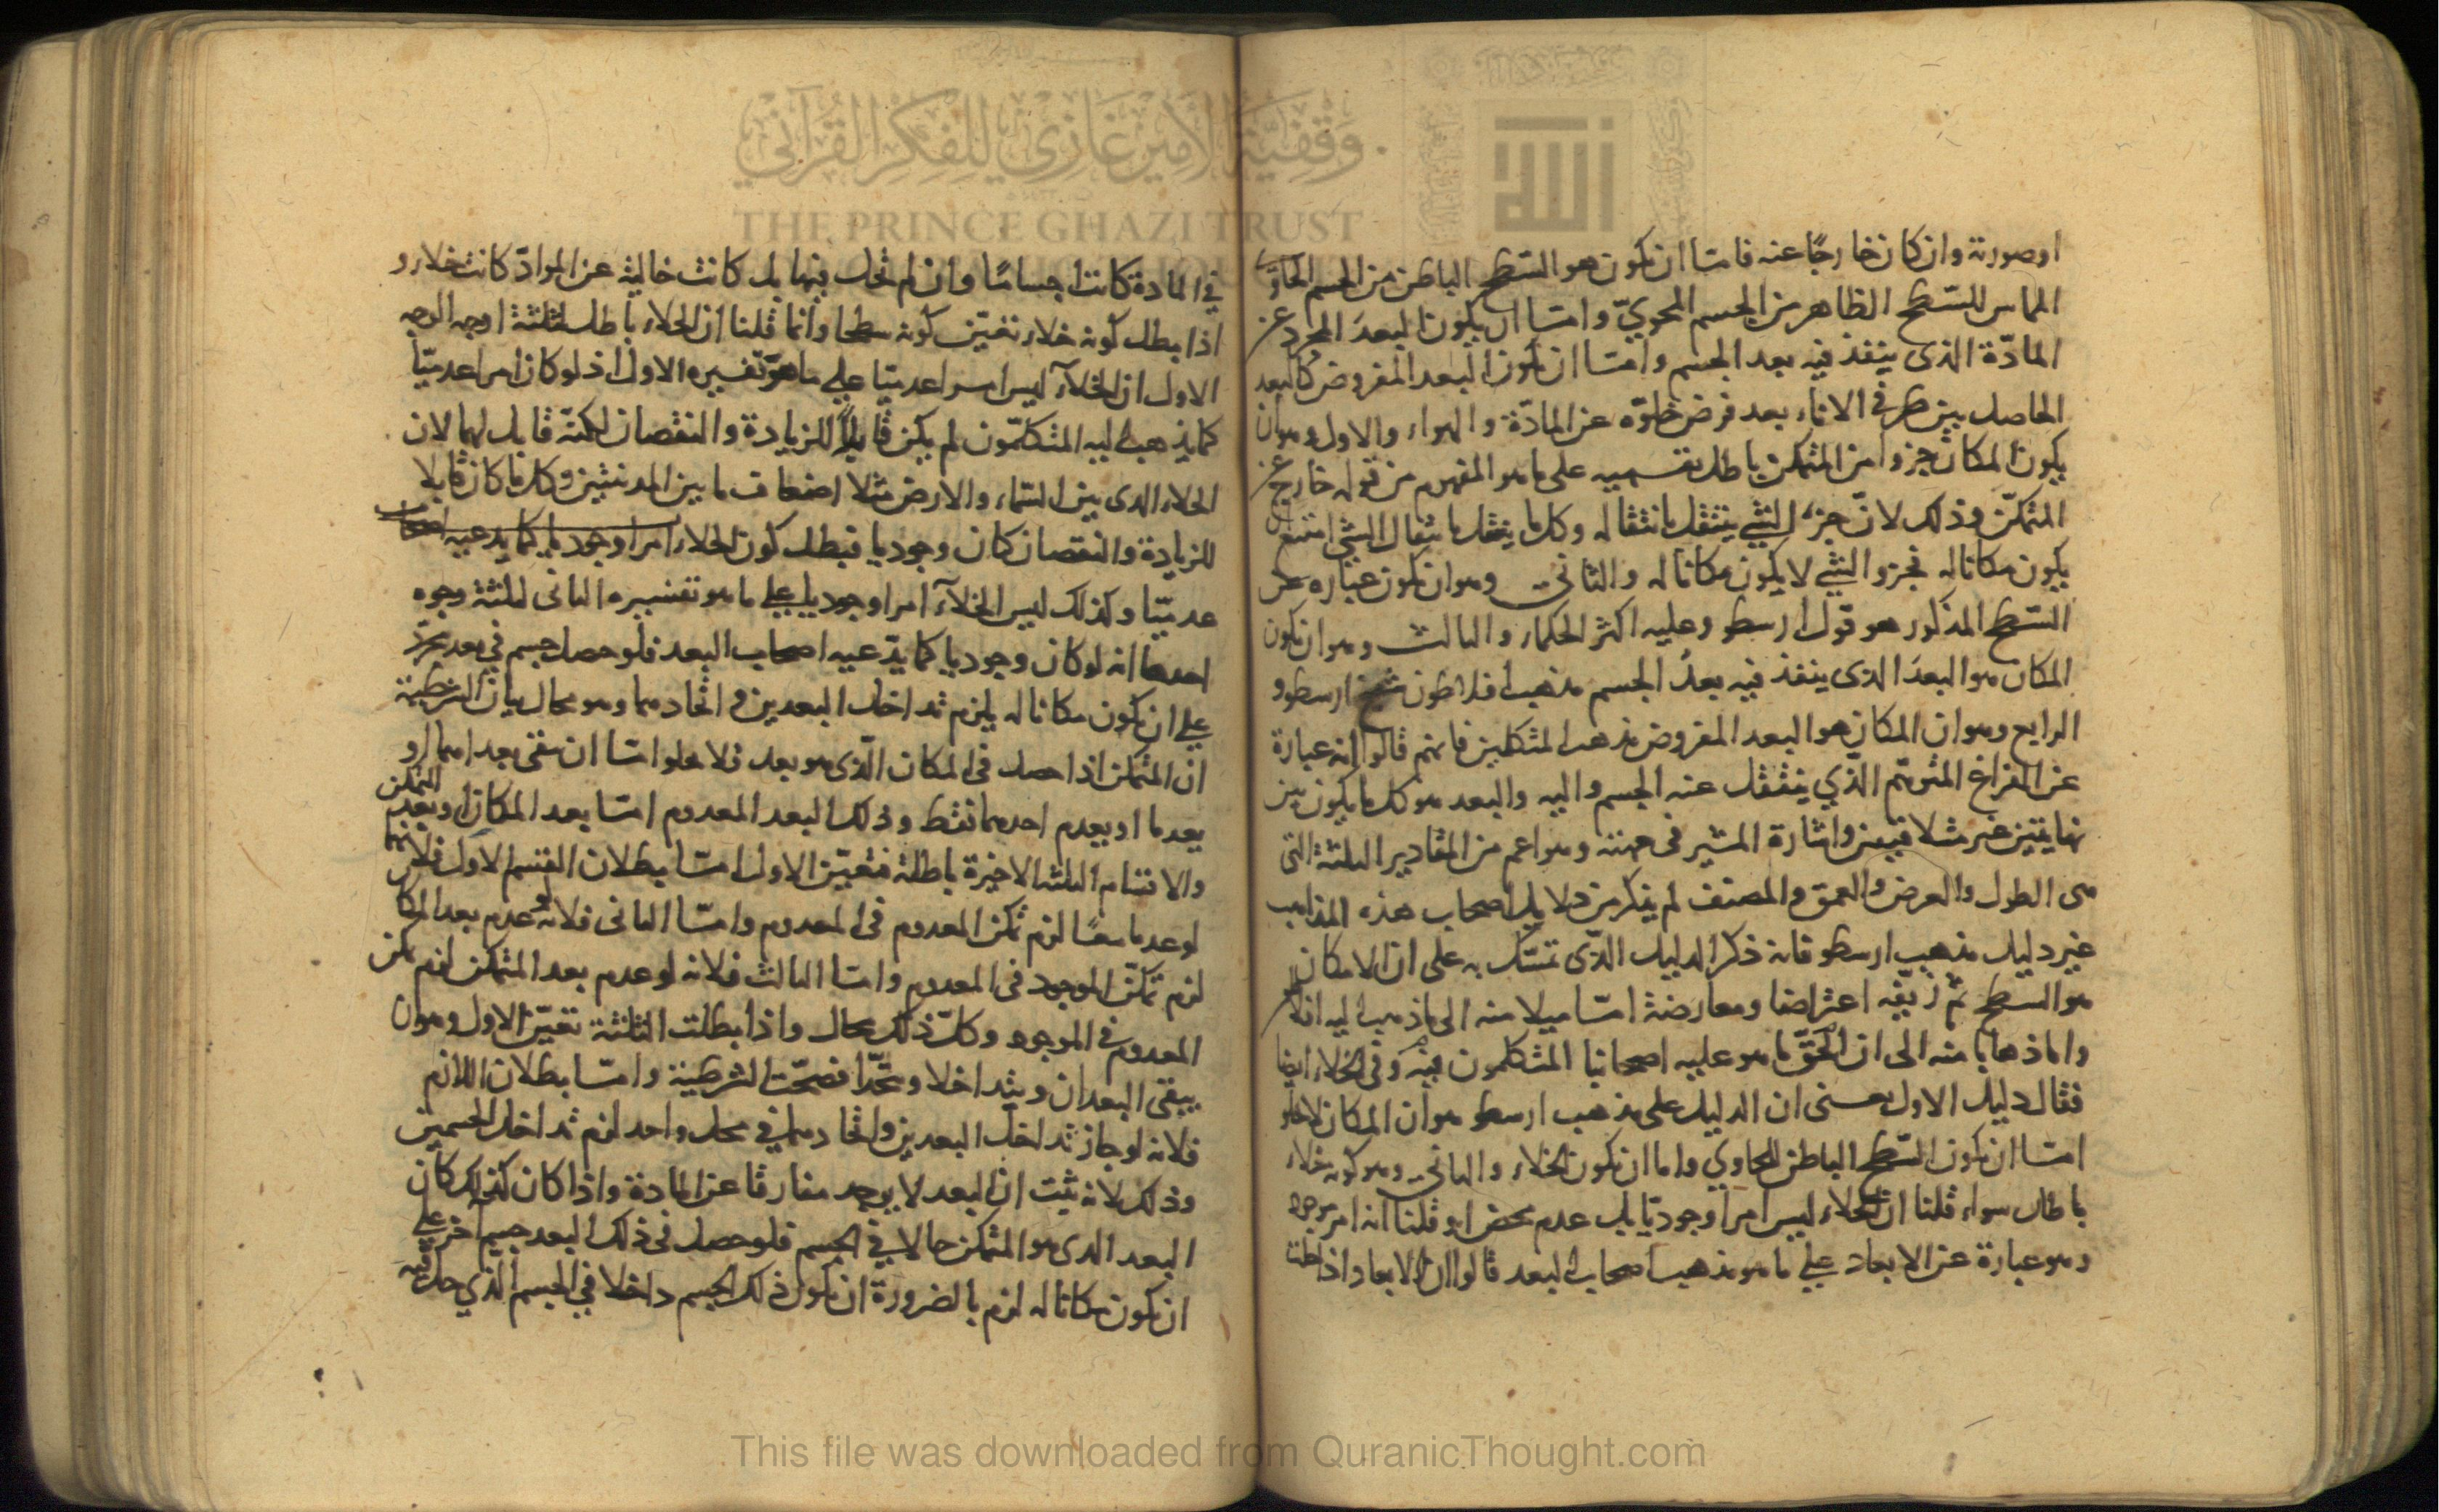 اوصورته وان كان خارجًا عنه فامّا ان يكون هو السّطح الباطن من الجسم الحاوى
المماس للسّطح الظاهر من الجسم المحويّ وامّا ان يكون البعدَ المجرد عن
المادّة الذى ينفذ فيه بعد الجسم وامّا ان يكون البعد المفروض كالبعد
الحاصل بين طرفى الاناء بعد فرض خلوّه عن المادّة والهواء والاول وهو ان
يكون المكان جزءا من المتمكن باطل بقسميه على ما هو المفهوم من قوله خارج عن
المتمكّن وذلك لانّ جزء الشئ ينتقل بانتقاله وكل ما ينتقل بانتقال الشئ امتنع ان
يكون مكانا له فجزو الشئ لا يكون مكانا له والثانى وهو ان يكون عبارة عن
السّطح المذكور هو قول ارسطو وعليه اكثر الحكماء والثالث وهو ان يكون
المكان هو البعدَ الذى ينفذ فيه بعدُ الجسم مذهب افلاطون شيخ ارسطو و
الرابع وهو ان المكان هو البعد المفروض مذهب المتكلمين فانهم قالوا انه عبارة
عن الفراغ المتوهّم الّذي ينتقل عنه الجسم واليه والبعد هو كل ما يكون بين
نهايتين غير متلاقيتين واشارة المشير فى جهته وهو اعم من المقادير الثلثة التى
هى الطول والعرض والعمق والمصنف لم يذكر من دلايل اصحاب هذه المذاهب
غير دليل مذهب ارسطو فانه ذكر الدليل الّذى تمسّك به على ان المكان
هو السطح ثمّ زيّفه اعتراضا ومعارضة امّا ميلا منه الى ما ذهب اليه افلاطن
واما ذهابا منه الى ان الحقّ ما هو عليه اصحابنا المتكلمون فيه وفى الخلاء ايضا
فقال دليل الاول يعنى ان الدليل على مذهب ارسطو هو ان المكان لا يخلو
امّا ان يكون السّطح الباطن للحاوي واما ان يكون الخلاء والثانى وهو كونه خلاء
باطل سواء قلنا ان الخلاء ليس امرا وجوديّا بل عدم محض او قلنا انه امر موجود
وهو عبارة عن الابعاد على ما هو مذهب اصحاب البعد قالوا ان الابعاد اذا حلت
في المادة كانت اجسامًا وان لم تحل فيها بل كانت خالية عن الموادّ كانت خلاء و
اذا بطل كونه خلاء تعيّن كونه سطحا وانما قلنا ان الخلاء باطل لثلثة اوجه الوجه
الاول ان الخلآء ليس امرا عدميّا على ما هو تفسيره الاول اذ لو كان امرا عدميّا
كما يذهب اليه المتكلّمون لم يكن قابلاً للزيادة والنقصان لكنّه قابل لهما لان
الخلاء الذى بين السّماء والارض مثلا اضعاف ما بين المدينتين وكل ما كان قابلا
للزيادة والنقصان كان وجوديا فبطل كون الخلاء امرا وجوديا كما يدعيه اصحاب
عدميّا وكذلك ليس الخلآء امرا وجوديا على ما هو تفسيره الثانى لثلثة وجوه
احدها انه لو كان وجوديا كما يدّعيه اصحاب البعد فلو حصل جسم في بعد مجرّد
على ان يكون مكانا له يلزم تداخل البعدين و اتحادهما وهو محال بيان الشرطية
ان المتمكن اذا حصل فى المكان الّذى هو بعد فلا يخلو امّا ان يبقى بعداهما او
يعدما او يعدم احدهما فقط وذلك البعد المعدوم امّا بعد المكان او بعد المتمكن
والاقسام الثلثة الاخيرة باطلة فتعيّن الاول امّا بطلان القسم الاول فلانهما
لو عدما معًا لزم تمكّن المعدوم فى المعدوم وامّا الثانى فلانه لو عدم بعد المكان
لزم تمكّن الموجود فى المعدوم وامّا الثالث فلانه لو عدم بعد المتمكن لزم تمكن
المعدوم في الموجود وكلّ ذلك محال واذا بطلت الثلثة تعيّن الاول وهو ان
يبقى البعدان ويتداخلا ويتّحدا فصحّت الشرطية وامّا بطلان اللازم
فلانه لو جاز تداخل البعدين واتحادهما في محل واحد لزم تداخل الجسمين
وذلك لانه ثبت ان البعد لا يوجد مفارقا عن المادة واذا كان كذلك كان
البعد الذى هو المتمكن حالا في الجسم فلو حصل فى ذلك البعد جسم آخر على
ان يكون مكانا له لزم بالضرورة ان يكون ذلك الجسم داخلا في الجسم الذي حل فيه
وقفية الأمير غازي للفكر القرآني
THE PRINCE GHAZI TRUST
الله
This file was downloaded from QuranicThought.com